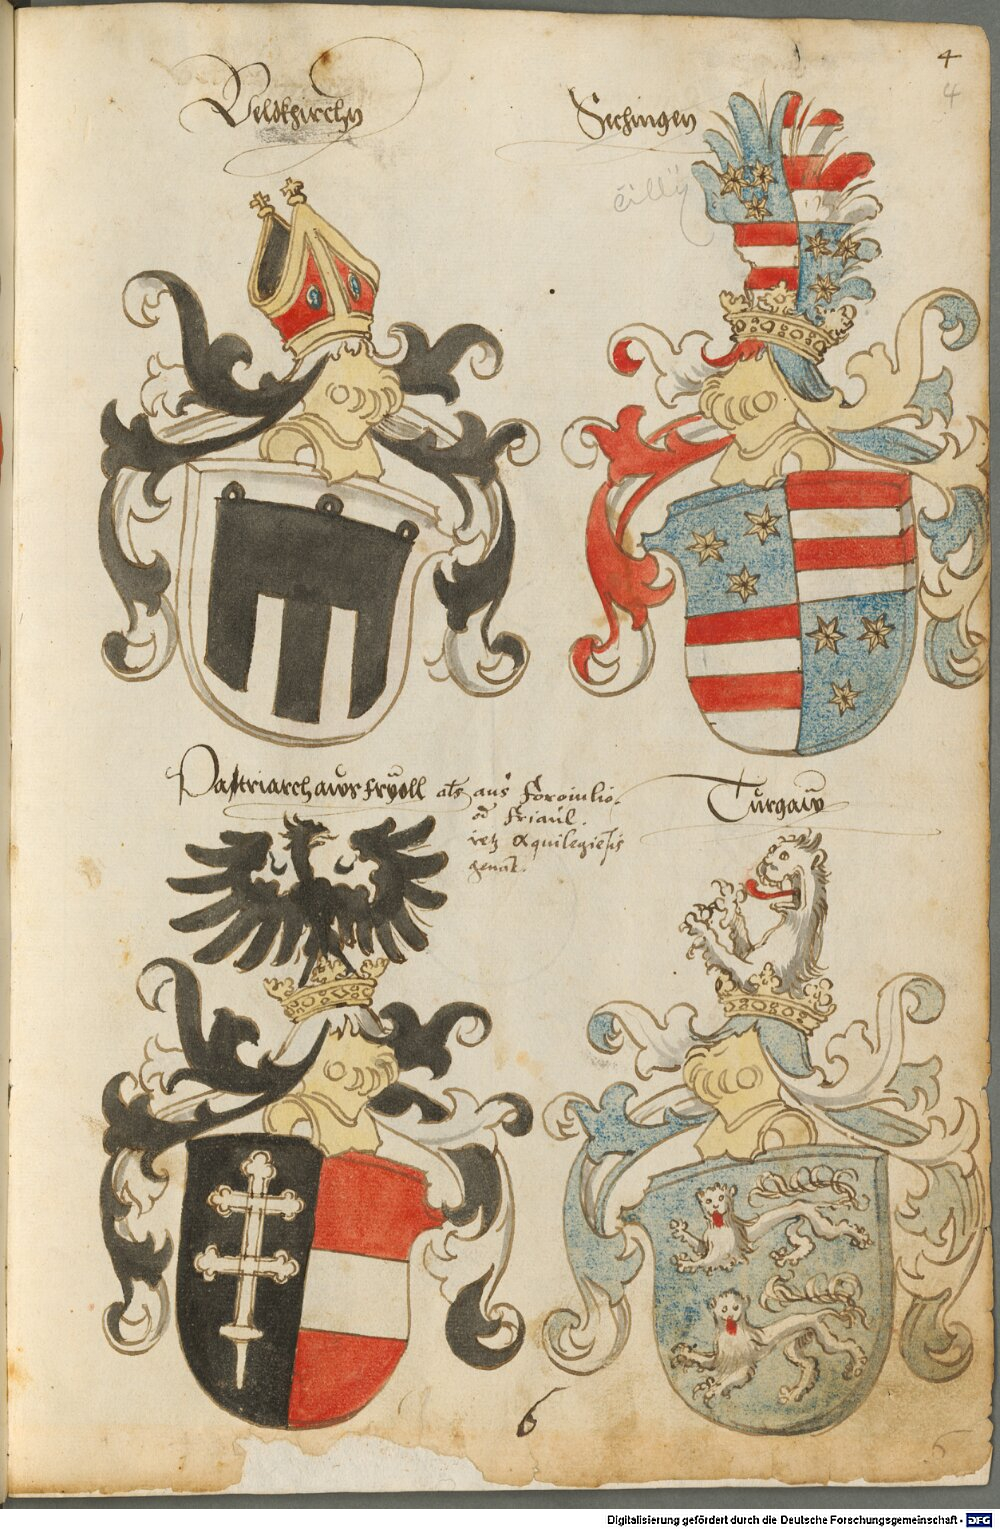 4
4
Veldkirchn
Sechingen
cilly
Patriarch aws fryoll als aus Foroiulio.
od Friaul.
ietz Aquilegiesis
genāt.
Turgaw
6
Digitalisierung gefördert durch die Deutsche Forschungsgemeinschaft - DFG